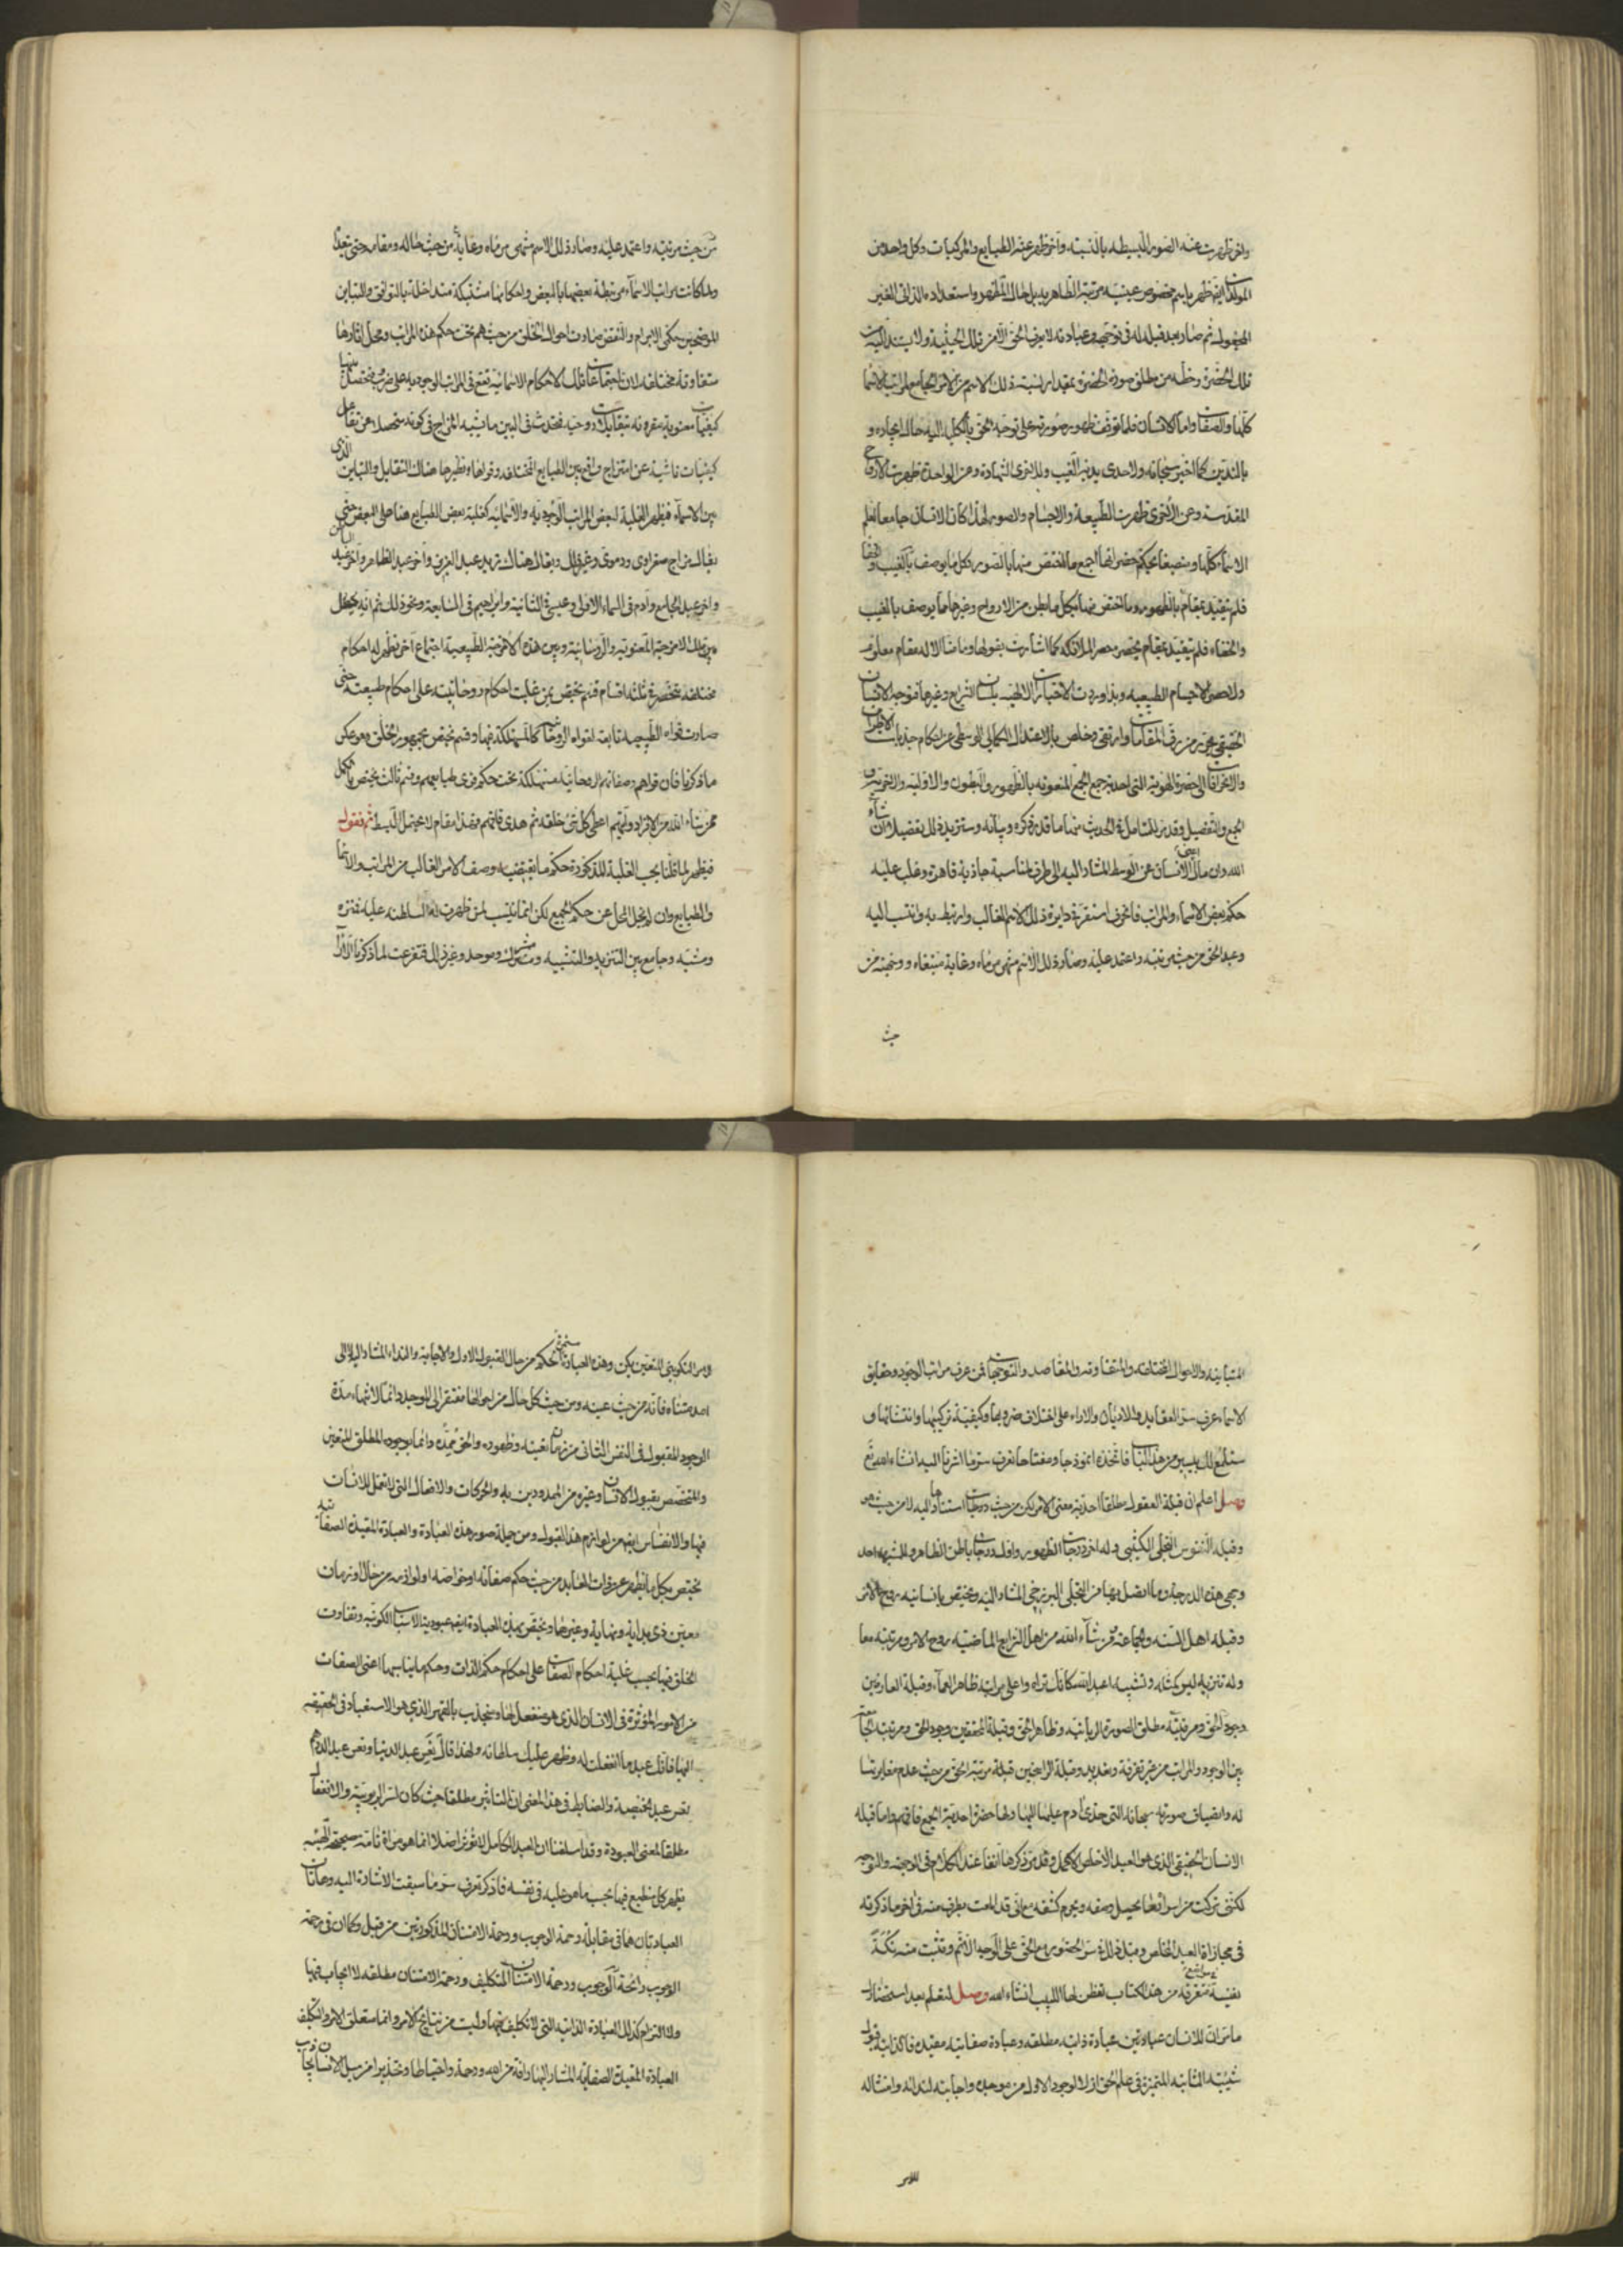 واخر ظهرت عنه الصور البسيطة بالنسبة وآخر ظهر عنه الطبايع والمركبات وكل واحد من
المولدات ايضا ظهر باسم مخصوص عينته مرتبة الظاهر به بل حال المظهر واستعداده الذاتي الغير
المجعول ثم صار بعد قبلة له في توجهه وعبادته لا يعرف الحق الا من تلك الحيثية ولا يستند اليه من
تلك الحضرة وحظه من مطلق صورة الحضرة بمقدار نسبة ذلك الاسم من الامر الجامع لمراتب الاسما
كلها والصفات واما الانسان فلما توقف ظهور صورته على توجه الحق بالكلية اليه حال ايجاده و
باليدين كما اخبر سبحانه ولاحدى يديه الغيب وللاخرى الشهادة وعن الواحدة ظهرت الارواح
المقدسة وعن الاخرى ظهرت الطبيعة والاجسام والصور لهذا كان الانسان جامعا لعلم
الاسماء كلها ومنصبغا بحكم حضراتها اجمع ما اختص منها بالصور وكل ما يوصف بالغيب والخفا
فلم يتقيد بمقام بالظهور وما اختص منها بكل ما بطن من الارواح وغيرها مما يوصف بالغيب
والخفاء فلم يتقيد بمقام يحصره حصر الملائكة كما اشارت بقولها وما منا الا له مقام معلوم
ولا حصر الاجسام الطبيعية وبذا وردت الاخبارات الالهية بلسان الشرايع وغيرها فتوجه الانسان
الحقيقي متى تحرر من رق المقامات وارتقى وخلص بالاعتدال الكمالي الوسطي عن احكام جذبات الاطراف
والانحرافات الى حضرة الهوية التي لها احدية جمع الجمع المنعوتة بالظهور والبطون والاولية والاخرية و
الجمع والتفصيل وقد مر للمتأمل في الحديث منها ما قدر ذكره وبيانه وسنزيد ذلك تفصيلا ان شاء
الله وان مال الانسان عن الوسط المشار اليه الى طرف لمناسبة جاذبة قاهرة وغلب عليه
حكم بعض الاسماء والمراتب فانحرف استقر في دايرة ذلك الاسم الغالب وارتبط به وانتسب اليه
وعبد الحق من حيث مرتبته واعتمد عليه وصار ذلك الاسم منتهى مرماه وغاية مبتغاه ووجهته من
حيث
من حيث مرتبته واعتمد عليه وصار ذلك الاسم منتهى مرماه وغايته من حيث حاله ومقامه حتى يتعدا
ولما كانت مراتب الاسماء مرتبطة بعضها بالبعض واحكامها مشتبكة متداخلة بالتوافق والتباين
الموضحين حكمي الابرام والنقض صارت احوال الخلق من حيث هم تحت حكم هذه المراتب ومحل اثارها
متفاوتة مختلفة لان اجتماعات تلك الاحكام الاسمائية تقع في المراتب الوجودية على ضروب فتحصل بينها
كيفيات معنوية مقرونة بتقابلات روحية فتحدث في البين ما يشبه المزاج في كونه متحصلا عن تفاعل
كيفيات ناشية عن امتزاج واقع بين الطبايع المختلفة وقواها ونظيرها هناك التقابل والتباين الذي
بين الاسماء فيظهر الغلبة لبعض المراتب الوجودية والاسمائية كغلبة بعض الطبايع هنا على البعض حتى
يقال مزاج صفراوي ودموي وغير ذلك ويقال هناك زيد عبد العزيز وآخر عبد الظاهر وآخر عبد الباطن
واخر عبد الجامع وآدم في السماء الاولى وعيسى في الثانية وابراهيم في السابعة ونحو ذلك ثم انه يحصل
بين تلك الامزجة المعنوية والروحانية وبين هذه الامزجة الطبيعية اجتماع آخر تظهر له احكام
مختلفة منحصرة في ثلثة اقسام قسم يختص بمن غلبت احكام روحانيته على احكام طبيعته حتى
صارت قواه الطبيعية تابعة لقواه الروحانية كالمستهلكة فيها وقسم يختص بجمهور الخلق وهو عكس
ما ذكرنا فان قواهم وصفاتهم الروحانية مستهلكة تحت حكم قوى طبايعهم وقسم ثالث يختص بالكمل
ممن شاء الله من الافراد وآيتهم اعطى كل شئ خلقه ثم هدى فافهم فهذا مقام لا يحتمل البسط ثم نقول
فيظهر لما قلنا بحسب الغلبة المذكورة حكم ما يقتضيه وصف الامر الغالب من المراتب والاسما
والطبايع وان لم يخل المحل عن حكم الجميع لكن انما ينسب لمن ظهرت له السلطنة عليه فمنزه
ومشبه وجامع بين التنزيه والتشبيه ومشرك وموحد وغير ذلك فتفرعت لما ذكرنا الاراء
المتباينة والاحوال المختلفة والمتفاوتة والمقاصد والتوجهات فمن عرف مراتب الوجود وحقايق
الاسماء عرف سر العقايد والاديان والاراء على اختلاف ضروبها وكيفية تركيبها وانتشائها و
سنلمع لك بيسير من هذا الباب فاتخذه انموذجا ومفتاحا تعرف سر ما اشرنا اليه انشاء الله تع
وصل اعلم ان قبلة العقول مطلقا احدية معنى الامر لكن من حيث درجات استنادها اليه لا من حيث هو
وقبلة النفوس التجلي الكثيبي وله اخر درجات الظهور واول درجات باطن الظاهر وللمشبه احد
وجهي هذه الدرجة وما اتصل بها من التجلي البرزخي المشار اليه ويختص بانسانيته روح الامر
وقبلة اهل السنة والجماعة ومن شاء الله من اهل الشرايع الماضية روح الامر ومرتبته معا
وله تنزيه ليس كمثله وتشبيه اعبد الله كانك تراه واعلى مراتبه ظاهر العماء وقبلة العارفين
وجود الحق ومرتبته مطلق الصورة الربانية وظاهر الحق وقبلة المحققين وجود الحق ومرتبته الجامعة
بين الوجود والمراتب من غير تفرقة وتعديد وقبلة الراسخين قبلة مرتبة الحق من حيث عدم مغايرتها
له وانضياف صورته سبحانه التي حذى آدم عليها اليها ولها حضرة احدية الجمع فافهم واما قبلة
الانسان الحقيقي الذي هو العبد الاخلص الاكمل وقد مر ذكرها آنفا عند الكلام في الوجهة والتوجه
لكنني تركت من اسراقبلة العبد ما يحيل وصفه ويحرم كشفه مع اني قد المعت بطرف منه في اخر ما ذكرته
في مجازاة العبد المخلص وقبل ذلك في سر الحضور مع الحق على الوجه الاتم وقد بثت منه نكتة
نفيسة متفرقة في مواضع من هذا الكتاب تفطن لها اللبيب انشاء الله وصل لتعلم بعد استحضارك
ما مر ان للانسان عبادتين عبادة ذاتية مطلقة وعبادة صفاتية مقيدة فالذاتية قبول
شيئيته الثابتة المتميزة في علم الحق ازلا لوجود الاول من موجده واجابته لندائه وامتثاله
للامر
وبر التكويني المتعين بكن وهذه العبادة مستمرة الحكم من حال القبول الاول والاجابة والنداء المشار اليه الى
امد متناه فانه من حيث عينه ومن حيث كل حال من احوالها مفتقر الى الموجد دائما لانتهاء مدة
الوجود المقبول في النفس الثاني من زمان تعينه وظهوره والحق ممده دائما بوجوده المطلق المتعين
والمتخصص بقبول الانسان وغيره من الممدودين به والحركات والافعال التي لا تعمل للانسان
فيها والانفاس ايضا من لوازم هذا القبول ومن جملة صور هذه العبادة والعبادة المقيدة الصفاتية
تختص بكل ما يظهر عن ذات العابد من حيث حكم صفاته او خواصه او لوازمه من حال او زمان
معين ذي بداية ونهاية وغيرها ويختص بهذه العبادة ايضا عبودية الاسباب الكونية وتفاوت
الخلق فيها بحسب غلبة احكام الصفات على احكام حكم الذات وحكم ما يناسبها اعني الصفات
من الامور المؤثرة في الانسان الذي هو منفعل لها ومنجذب بالقهر الذي هو الاستعباد في الحقيقة
اليها فانك عبد ما انفعلت له وظهر عليك سلطانه ولهذا قال تعس عبد الدنيا وتعس عبد الدرهم
تعس عبد الخميصة والضابط في هذا المعنى ان التاثير مطلقا حيث كان لسر الربوبية والانفعال
مطلقا لمعنى العبودة وقد اسلفنا ان العبد الكامل لا يؤثر اصلا انما هو مرآة تامة صحيحة الهيئة
يظهر كل منطبع فيها بحسب ما هو عليه في نفسه فاذكر تعرف سر ما سبقت الاشارة اليه وهاتان
العبادتان هما في مقابلة رحمة الوجوب ورحمة الامتنان المذكورتين من قبل وكما ان في رحمة
الوجوب رائحة الوجوب ورحمة الامتنان التكليف ورحمة الامتنان مطلقة لا ايجاب فيها
ولا التزام كذلك العبادة الذاتية التي لا تكليف فيها وليست من نتايج الامر وانما متعلق الامر والتكليف
العبادة المقيدة الصفاتية المشار اليها رافة من الله ورحمة واحتياطا وتحذيرا من ميل الانسان بجاذب